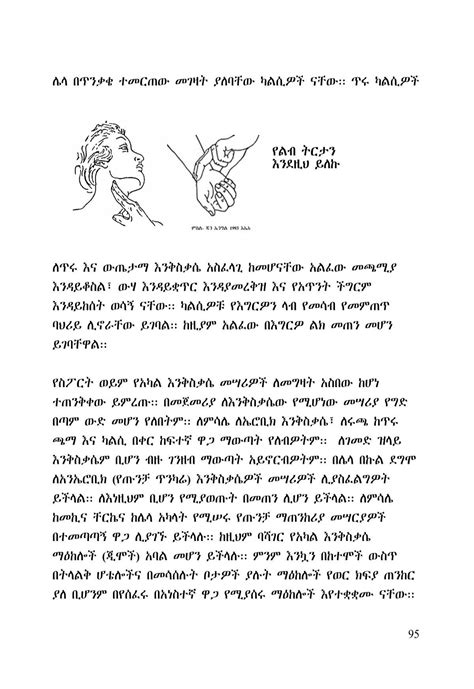 ሌላ በጥንቃቄ ተመርጠው መገዛት ያለባቸው ካልሲዎች ናቸው። ጥሩ ካልሲዎች
የልብ ትርታን
እንደዚህ ይለኩ
ለጥሩ እና ውጤታማ እንቅስቃሴ አስፈላጊ ከመሆናቸው አልፈው መጫሚያ
እንዳይቆስል፣ ውሃ እንዳይቋጥር እንዳያመረቅዝ እና የአጥንት ችግርም
እንዳይከሰት ወሳኝ ናቸው። ካልሲዎቹ የእግርዎን ላብ የመሳብ የመምጠጥ
ባህሪይ ሊኖራቸው ይገባል። ከዚያም አልፈው በእግርዎ ልክ መጠን መሆን
ይገባቸዋል።
የስፖርት ወይም የአካል እንቅስቃሴ መሣሪዎች ለመግዛት አስበው ከሆነ
ተጠንቅቀው ይምረጡ። በመጀመሪያ ለእንቅስቃሴው የሚሆነው መሣሪያ የግድ
በጣም ውድ መሆን የለበትም። ለምሳሌ ለኤሮቢክ እንቅስቃሴ፣ ለሩጫ ከጥሩ
ጫማ እና ካልሲ በቀር ከፍተኛ ዋጋ ማውጣት የለብዎትም። ለገመድ ዝላይ
እንቅስቃሴም ቢሆን ብዙ ገንዘብ ማውጣት አይኖርብዎትም። በሌላ በኩል ደግሞ
ለአንኤሮቢክ (የጡንቻ ጥንካሬ) እንቅስቃሴዎች መሣሪዎች ሊያስፈልግዎት
ይችላል። ለእነዚህም ቢሆን የሚያወጡት በመጠን ሊሆን ይችላል። ለምሳሌ
ከመኪና ቸርኬና ከሌላ አካላት የሚሠሩ የጡንቻ ማጠንከሪያ መሣርያዎች
በተመጣጣኝ ዋጋ ሊያገኙ ይችላሉ። ከዚህም ባሻገር የአካል እንቅስቃሴ
ማዕከሎች (ጂሞች) አባል መሆን ይችላሉ። ምንም እንኳን በከተሞች ውስጥ
በትላልቅ ሆቴሎችና በመሳሰሉት ቦታዎች ያሉት ማዕከሎች የወር ክፍያ ጠንከር
ያለ ቢሆንም በየሰፈሩ በአነስተኛ ዋጋ የሚያሰሩ ማዕከሎች እየተቋቋሙ ናቸው።
95